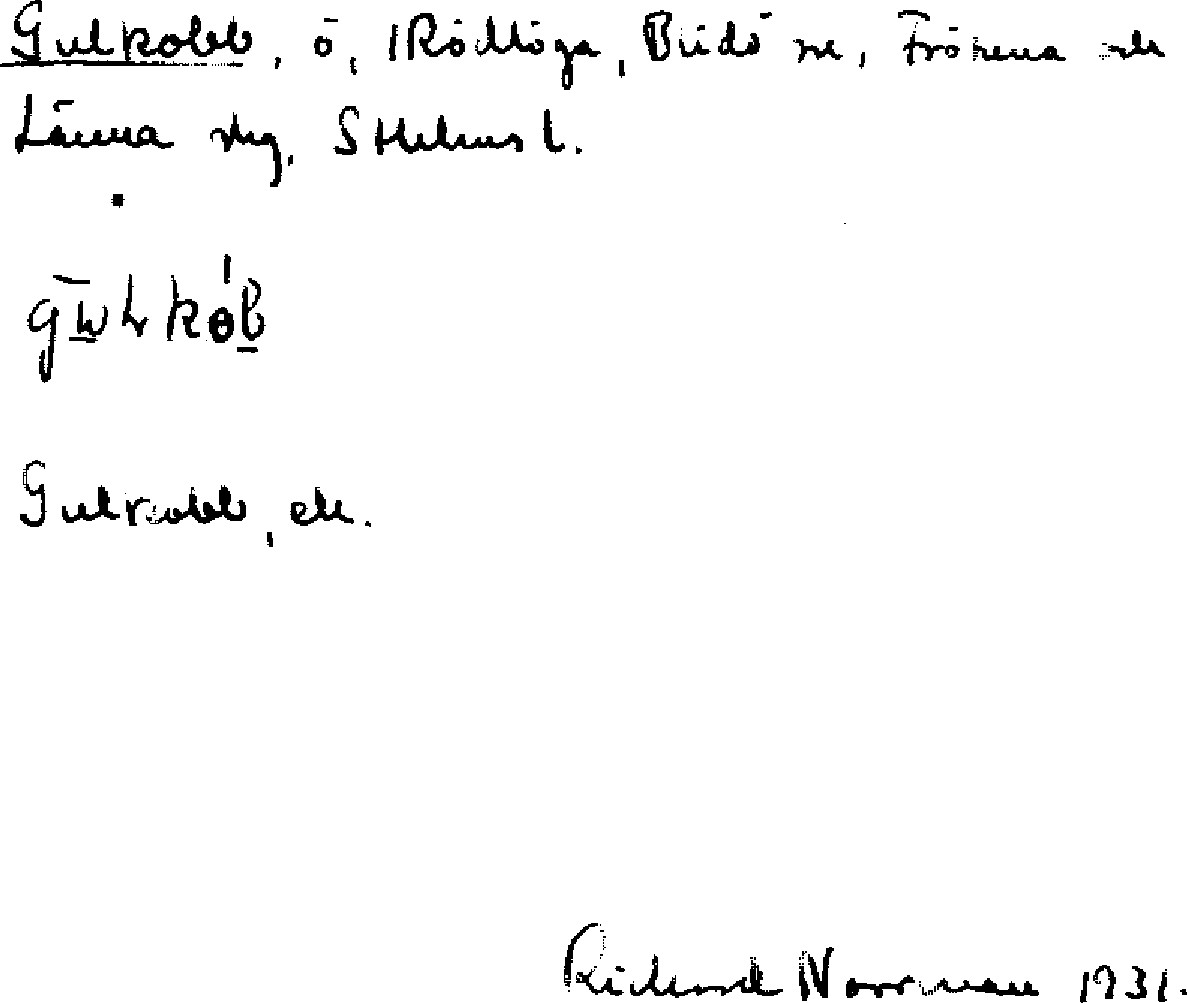 Gulkobb, ö, Rödlöga, Blidö sn, Frötuna och
Länna skg, Sthlms l.
Gulkobb, ek.
Richard Norrman 1931.